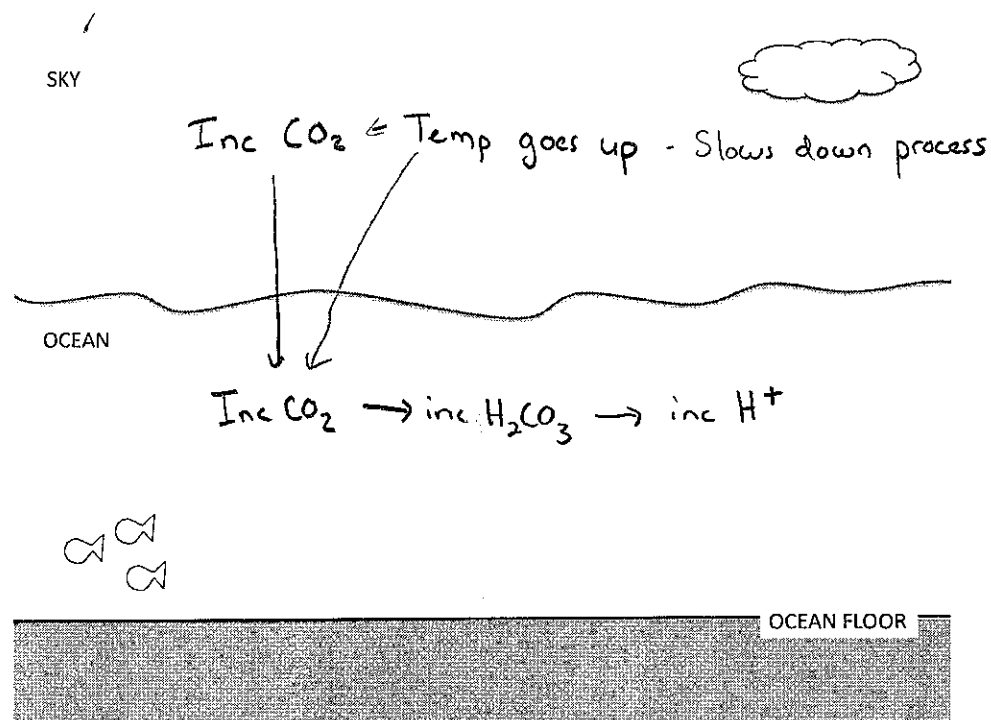 SKY
Inc CO₂ ⇐ Temp goes up - Slows down process
OCEAN
Inc CO₂ → inc H₂CO₃ → inc H⁺
OCEAN FLOOR